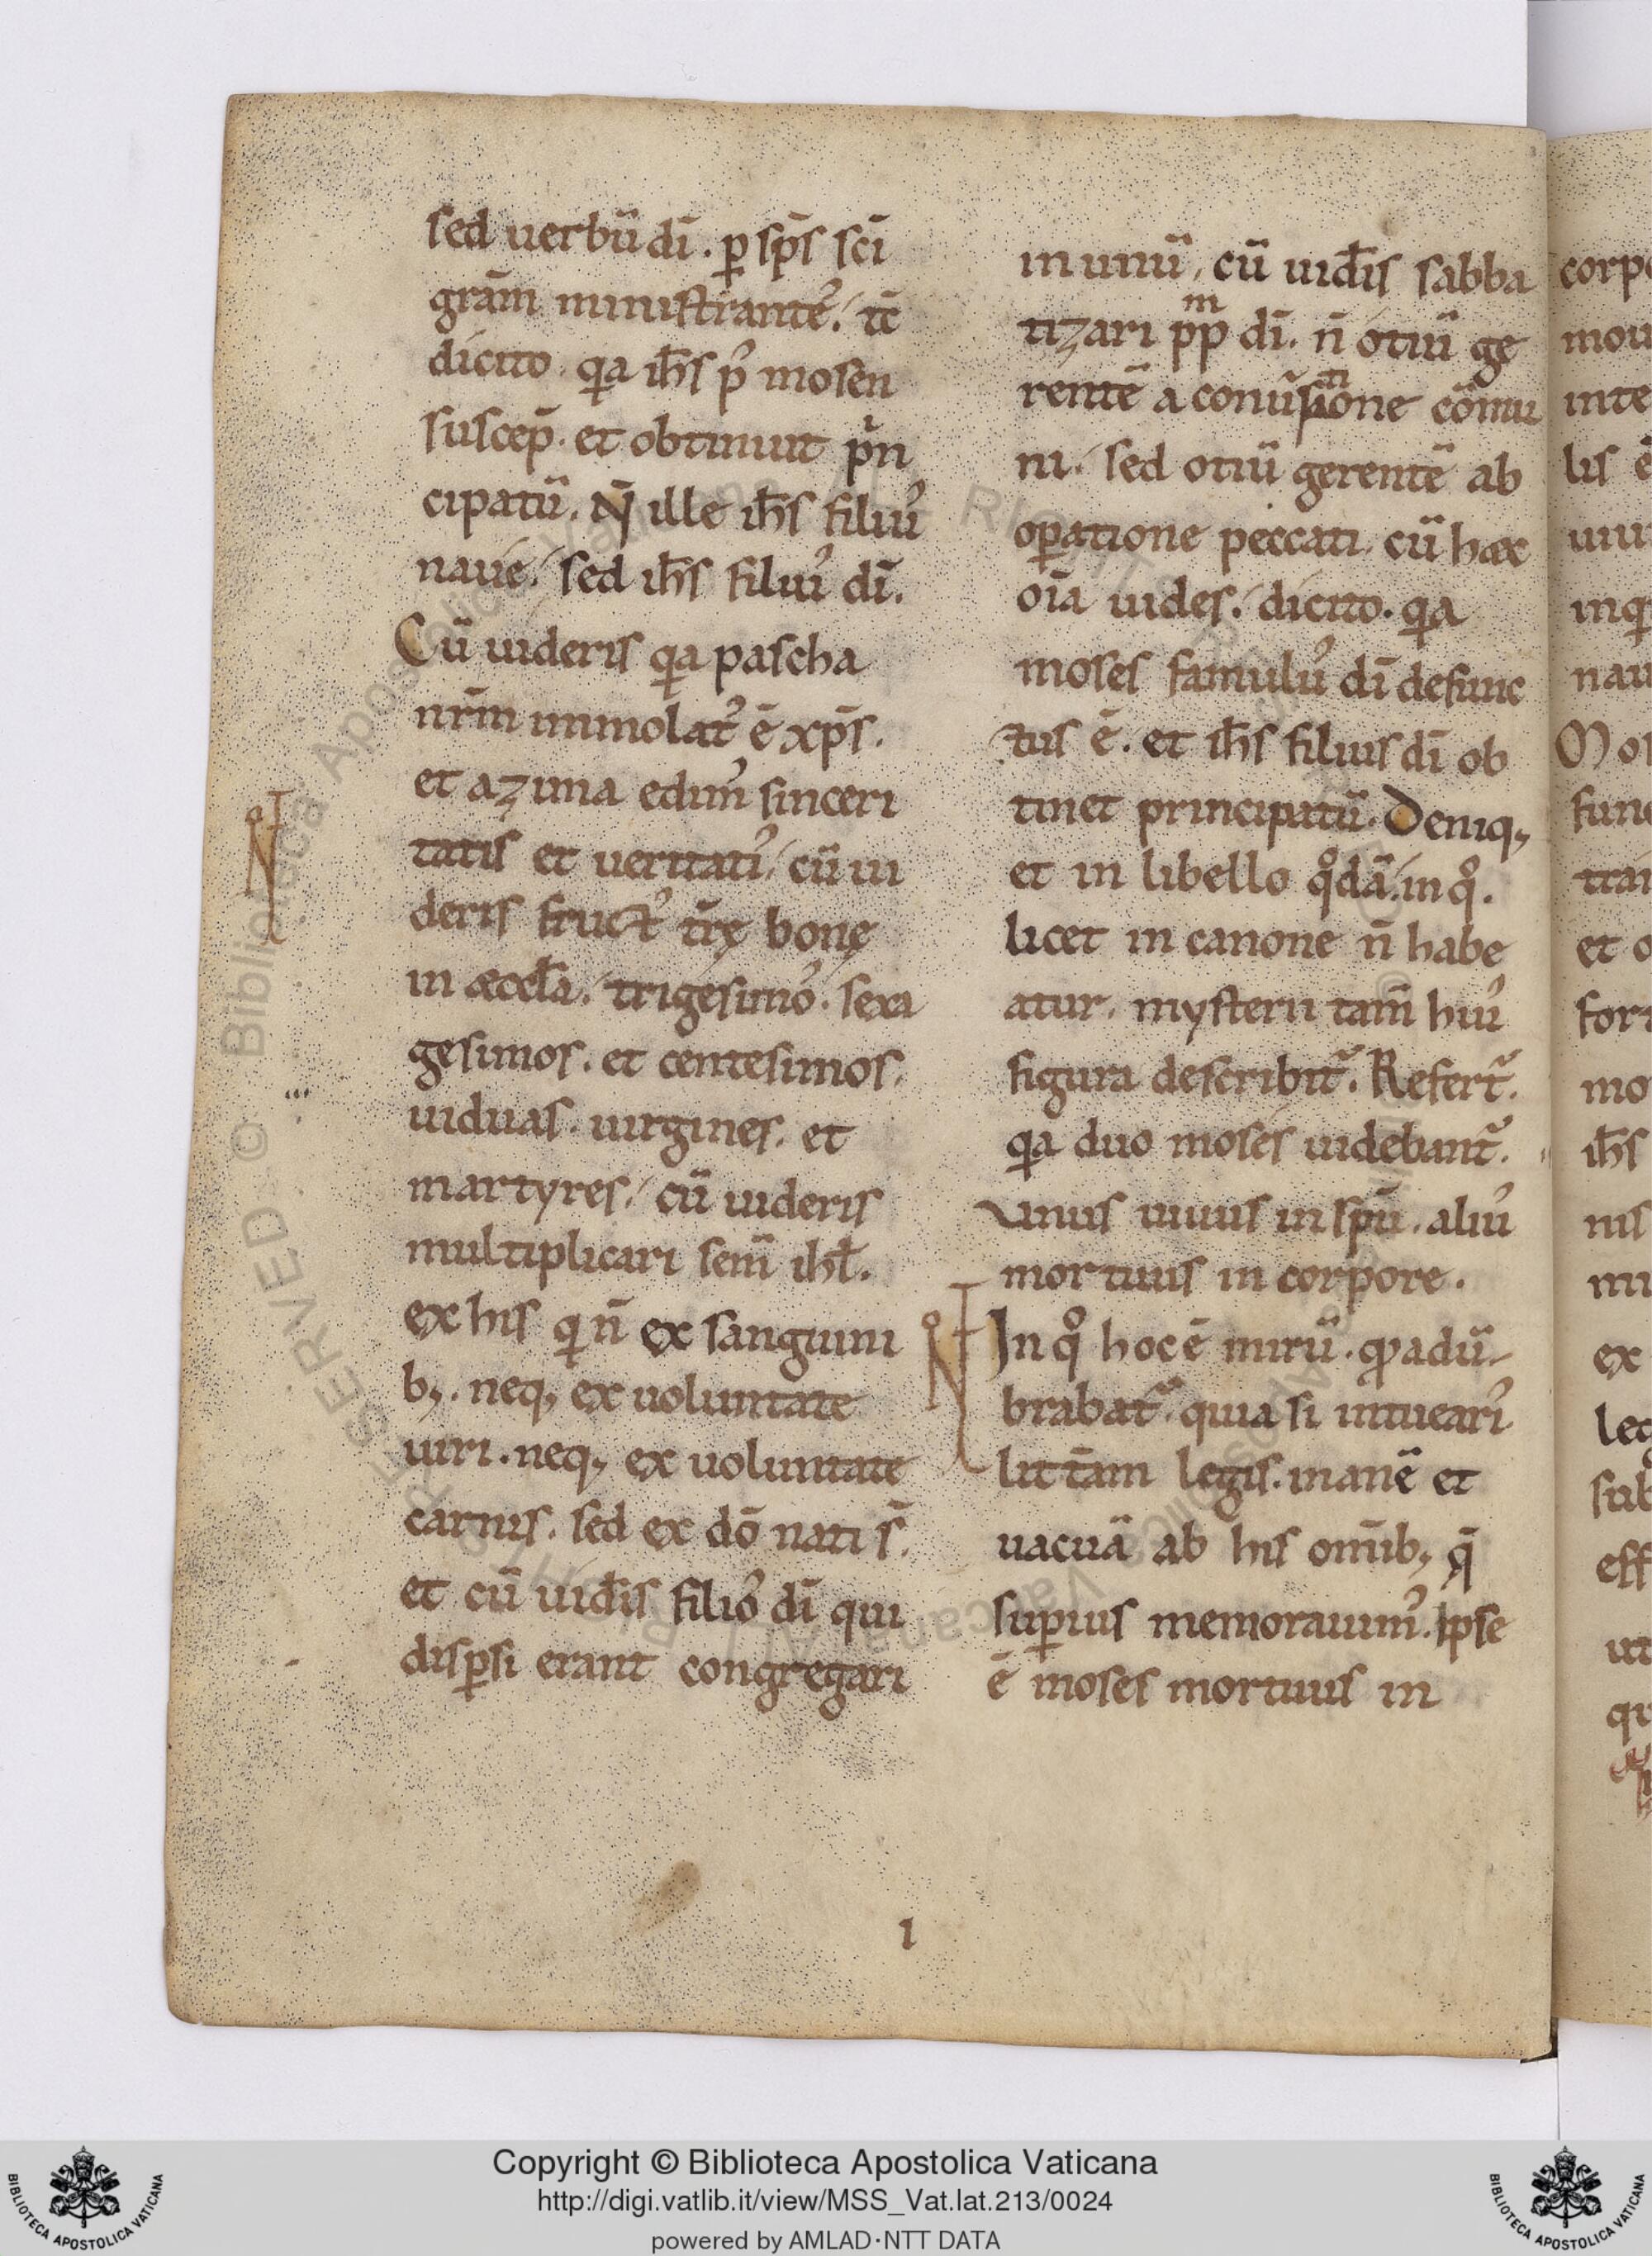 sed uerbū dī . ꝑ sp̄s sc̄i
gr̄am ministrante᷒ ./ tc̄
dicito . qͥa ih̄s p᷒ mosen
suscep̄ . et obtinuit pͥn
cipatū . N̄ ille ih̄s filiu᷒
naue ./ sed ih̄s filiu᷒ dī .
Cū uideris qͥa pascha
nr̄m immolat᷒ ē xp̄s .
et azima edim᷒ sinceri
tatis et ueritati᷒ / cū ui
deris fruct᷒ t̄rę bonę
in æccl̄a ./ trigesimo᷒ . sexa
gesimos . et centesimos .
uiduas . uirgines . et
martyres ./ cū uideris
multiplicari sem̄ ihl̄ .
ex his qͥ n̄ ex sanguini
b; . neq; ex uoluntate
uiri . neq; ex uoluntate
carnis . sed ex dō nati s̄ .
et cū uid̄is filio᷒ dī qui
disꝑsi erant congregari
in unū , cū uid̄is sabba
tizari pp̄m dī . n̄ otiū ge
rentē a conūsatione cōmu
ni ./ sed otiū gerentē ab
oꝑatione peccati . cū hæc
oīa uides ./ dicito . qͥa
moses famulu᷒ dī defunc
tus ē . et ih̄s filius dī ob
tinet principatū . Deniq;
et in libello qͦdā ./ in qͦ .
licet in canone n̄ habe
atur . mysterii tam̄ hui᷒
figura describit᷑ . Refert᷑ .
qͥa duo moses uidebant᷑ .
Unus uiuus in spū . aliu᷒
mortuus in corpore .
In qͦ hoc ē mirū . ꝓ adū
brabat᷑ . quia si intueari᷒
litt̄am legis . inanē et
uacuā ab his omīb; q̄
suꝑius memorauim᷒ . Ipse
ē moses mortuus in
1
corp
Copyright © Biblioteca Apostolica Vaticana
http://digi.vatlib.it/view/MSS_Vat.lat.213/0024
powered by AMLAD·NTT DATA
BIBLIOTECA APOSTOLICA VATICANA
BIBLIOTECA APOSTOLICA VATICANA